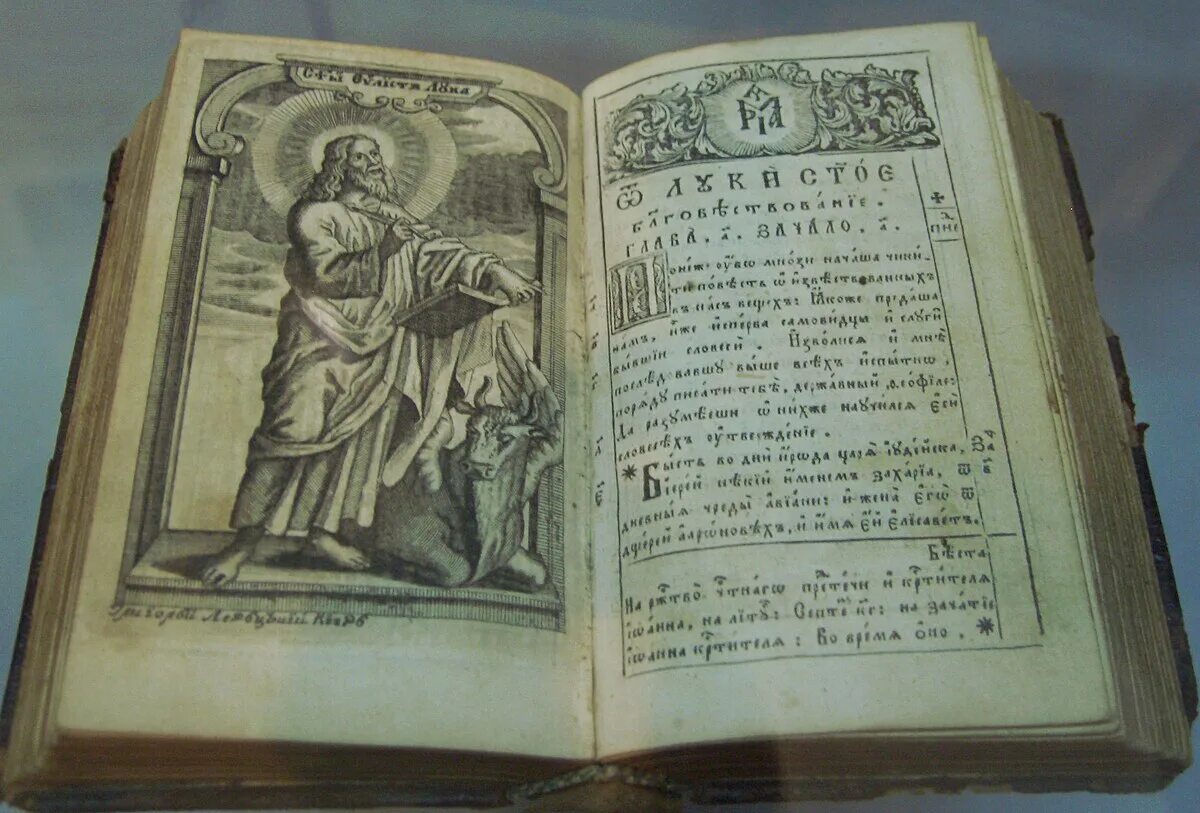 Ст҃ы́й Еѵ҃листъ Лꙋка
Григорїй
МРІА
Ѿ ЛУКИ СТ҃ОЕ
БЛ҃ГОВѢСТВОВА́НЇЕ.
ГЛАВА̀. а҃. ЗАЧА́ЛО. а҃.
Поне́же ᲂу҆́бѡ мно́зи нача́ша чини́-
ти по́вѣсть ѡ҆ и҆звѣ́ствованныхъ
въ на́съ ве́щехъ: Ꙗ҆́коже преда́ша
на́мъ, и҆̀же и҆спе́рва самови́дцы и҆ слꙋги̑
бы́вшїи словесѐ. И҆зво́лисѧ и҆ мнѣ̀
послѣ́довавшꙋ вы́ше всѣ̑хъ и҆спы́тнѡ,
порѧ́дꙋ писа́ти тебѣ̀, держа́вный ѳ҆ео́фїле:
Да разꙋмѣ́еши ѡ҆ ни́хже наꙋчи́лсѧ є҆сѝ
словесѣ́хъ ᲂу҆твержде́нїе.
* Бы́сть во дни̑ и҆́рѡда царѧ̀ і҆ꙋде́йска,
і҆ере́й нѣ́кїй и҆́менемъ заха́рїа, ѿ
дне́вныѧ чреды̀ а҆вїа́ни: и҆ жена̀ є҆гѡ̀ ѿ
дще́рей а҆арѡ́новѣхъ, и҆ и҆́мѧ є҆́й є҆лїсаве́тъ.
Бѣ́ста
На ржⷭ҇тво̀ чⷭ҇тна́гѡ прⷣте́чи и҆ крⷭ҇ти́телѧ
і҆ѡа́нна, на лїтꙋ́: Септе́ кг҃: на зача́тїе
і҆ѡа́нна крⷭ҇ти́телѧ: Во вре́мѧ ѻ҆́но. *